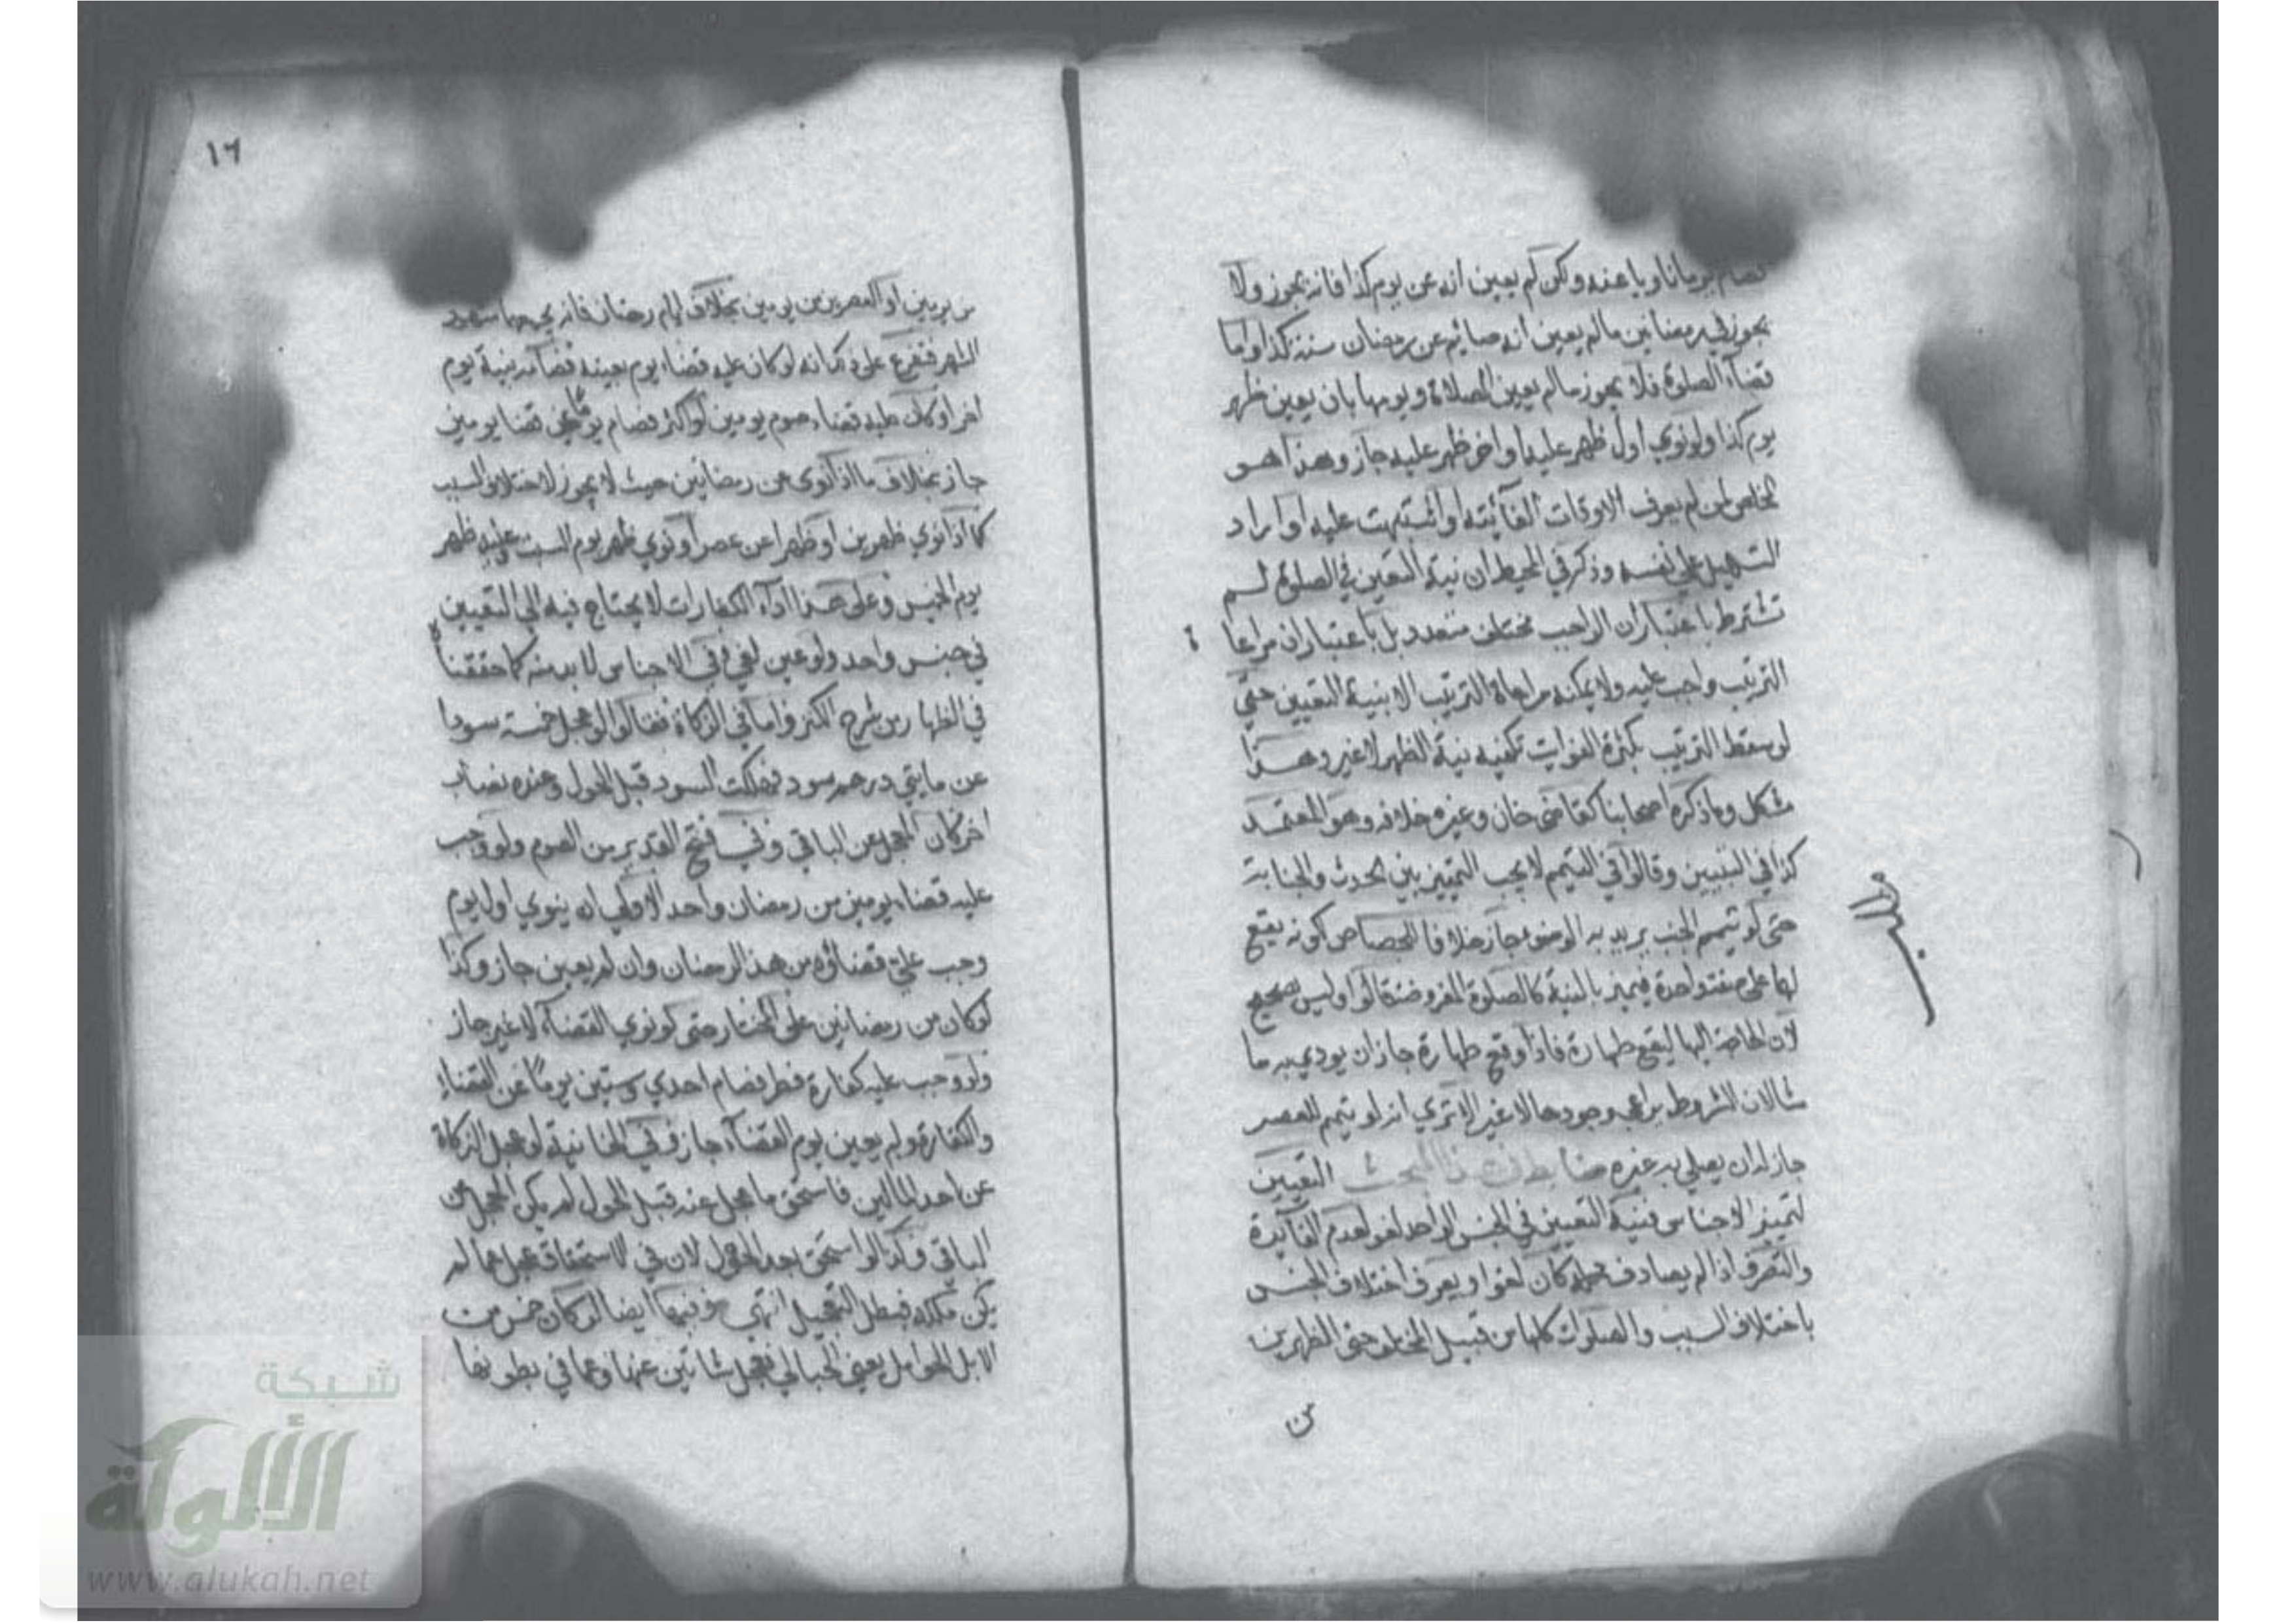 فصام يوما ناويا عنه ولكن لم يعين انه عن يوم كذا فانه يجوز ولا
يجوز في رمضانين مالم يعين انه صايم عن رمضان سنة كذا واما
قضآء الصلوة فلا يجوز مالم يعين الصلاة ويومها بان يعين ظهر
يوم كذا ولو نوي اول ظهر عليه او اخر ظهر عليه جاز وهذا هو
المخلص لمن لم يعرف الاوقات الفآئيته او اشتبهت عليه او اراد
التسهيل علي نفسه وذكر في المحيط ان نية التعين في الصلوة لم
تشترط باعتبار ان الواجب مختلف متعدد بل باعتبار ان مراعا
ة
الترتيب واجب عليه ولا يمكنه مراعاة الترتيب الا بنية التعيين حتي
لو سقط الترتيب بكثرة الفوايت تكفيه نية الظهر لا غير وهذا
مشكل وما ذكره اصحابنا كقاضي خان وغيره خلافه وهو المعتمد
كذا في التبيين وقالوا في التيمم لا يجب التمييز بين الحدث والجنابة
حتى لو تيمم الجنب يريد به الوضوء جاز خلافا للجصاص كونه يقع
لهما على صفة واحدة فيميز بالنية كالصلوة المفروضة قالوا وليس بصحيح
لان الحاجة اليها ليقع طهارة فاذا وقع طهارة جاز ان يودي به ما
شالان الشروط يراعي وجودها لا غير الا تري انه لو تيمم للعصر
جاز له ان يصلي به غيره ضابط في هذا المبحث التعيين
لتمييز الاجناس فنية التعيين في الجنس الواحد لغو لعدم الفآيدة
والتصرف اذا لم يصادف محله كان لغوا ويعرف اختلاف الجنس
باختلاف السبب والصلوات كلها من قبيل المختلف حتى الظهرين
من
١٦
من يومين او العصرين من يومين بخلاف ايام رمضان فانه يجمعها شهود
الشهر ففرع على ذلك انه لو كان عليه قضاء يوم بعينه فصامه بنية يوم
اخر او كان عليه قضاء صوم يومين او اكثر فصام يوما عن قضا يومين
جاز بخلاف ما اذا نوى عن رمضانين حيث لا يجوز لاختلاف السبب
كما اذا نوي ظهرين او ظهرا عن عصر او نوي ظهر يوم السبت وعليه ظهر
يوم الخميس وعلى هذا ادآء الكفارات لا يحتاج فيه الي التعيين
في جنس واحد ولو عين لغي وفي الاجناس لا بد منه كما حققناه
في الظهار من شرح الكنز واما في الزكاة فقالوا لو عجل خمسة سودا
عن مايتي درهم سود فهلكت السود قبل الحول وعنده نصاب
اخر كان المعجل عن الباقي وفي فتح القدير من الصوم ولو وجب
عليه قضاء يومين من رمضان واحد الاولي ان ينوي اول يوم
وجب علي قضاؤه من هذا الرمضان وان لم يعين جاز وكذا
لو كان من رمضانين على المختار حتى لو نوي القضآء لا غير جاز
ولو وجب عليه كفارة فطر فصام احدي وستين يوما عن القضاء
والكفارة ولم يعين يوم القضآء جاز وفي الخانية لو عجل الزكاة
عن احد المالين فاستحق ما عجل عنه قبل الحول لم يكن المعجل عن
الباقي وكذا لو استحق بعد الحول لان في الاستحقاق عجل عما لم
يكن ملكه فبطل التعجيل انتهي وفيها ايضا لو كان خمس من
الابل الحوامل يعني الحبالي فعجل شاتين عنها وعما في بطونها
شبكة
الألوكة
www.alukah.net